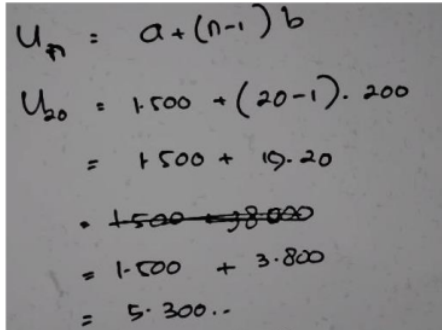 Un = a + (n-1) b
U20 = 1.500 + (20-1). 200
= 1.500 + 19.20
= 1.500 + 38000
= 1.500 + 3.800
= 5.300..